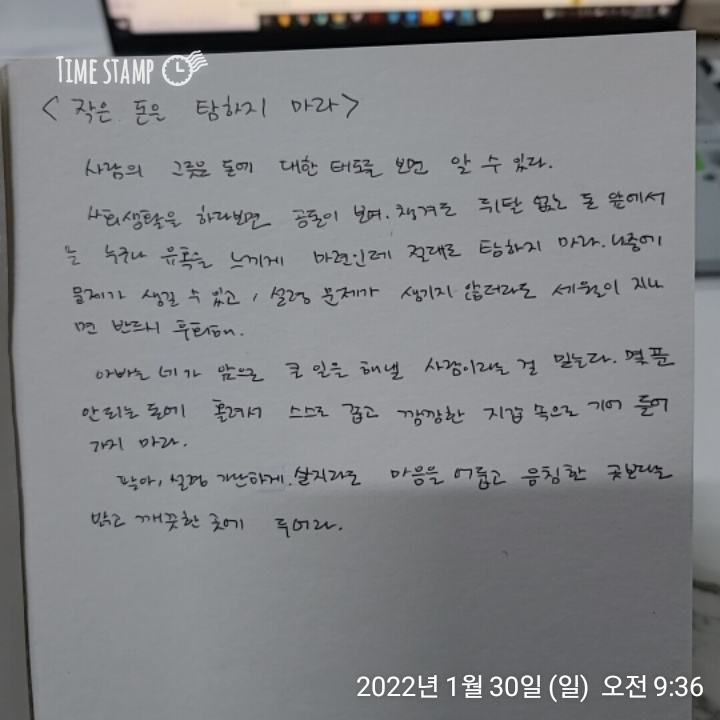 TIME STAMP
<작은 돈을 탐하지 마라>
사람의 그릇은 돈에 대한 태도를 보면 알 수 있다.
사회생활을 하다보면 공돈이 보여. 챙겨도 뒤탈 없는 돈 앞에서
는 누구나 유혹을 느끼게 마련인데 절대로 탐하지 마라. 나중에
문제가 생길 수 있고, 설령 문제가 생기지 않더라도 세월이 지나
면 반드시 후회해.
아빠는 네가 앞으로 큰 일을 해낼 사람이라는 걸 믿는다. 몇 푼
안 되는 돈에 홀려서 스스로 좁고 깜깜한 지갑 속으로 기어 들어
가지 마라.
딸아, 설령 가난하게 살지라도 마음을 어둡고 음침한 곳보다는
밝고 깨끗한 곳에 두어라.
2022년 1월 30일 (일) 오전 9:36